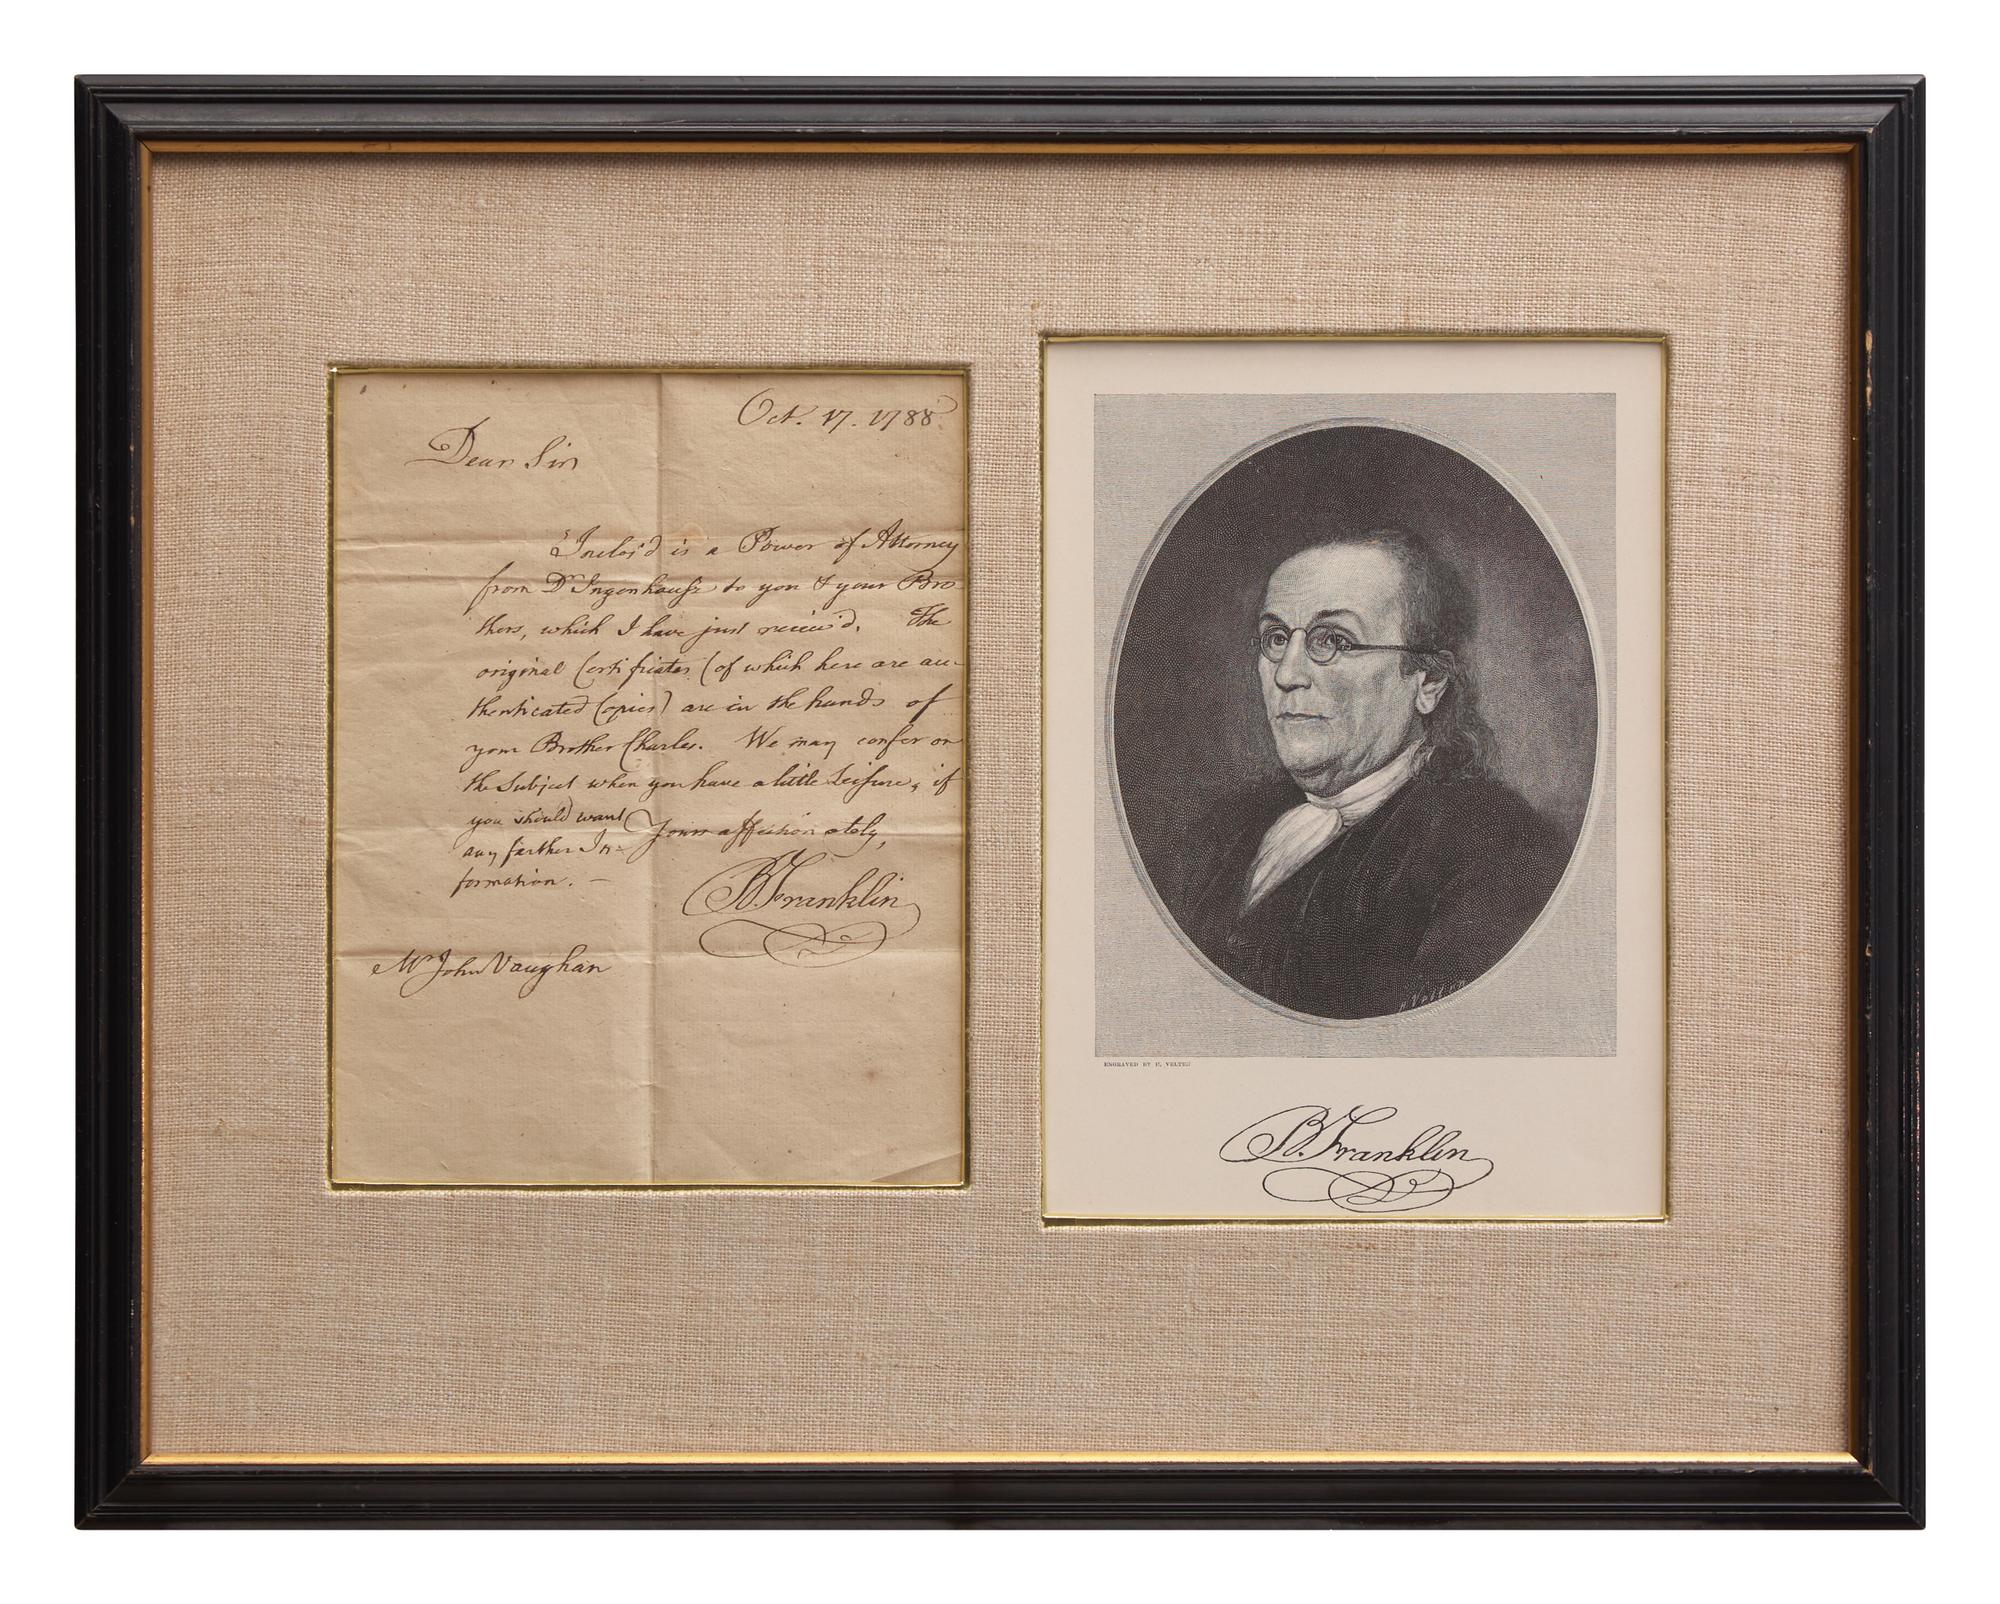 Oct. 17. 1788
Dear Sir
Inclos'd is a Power of Attorney
from Dr Ingenhausz to you & your Bro-
thers, which I have just receiv'd. The
original Certificates (of which here are au-
thenticated Copies) are in the hands of
your Brother Charles. We may confer on
the Subject when you have a little Leisure, if
you should want
any farther In-
formation. —
Yours affectionately,
B. Franklin
Mr John Vaughan
H Velten
ENGRAVED BY H. VELTEN
B. Franklin